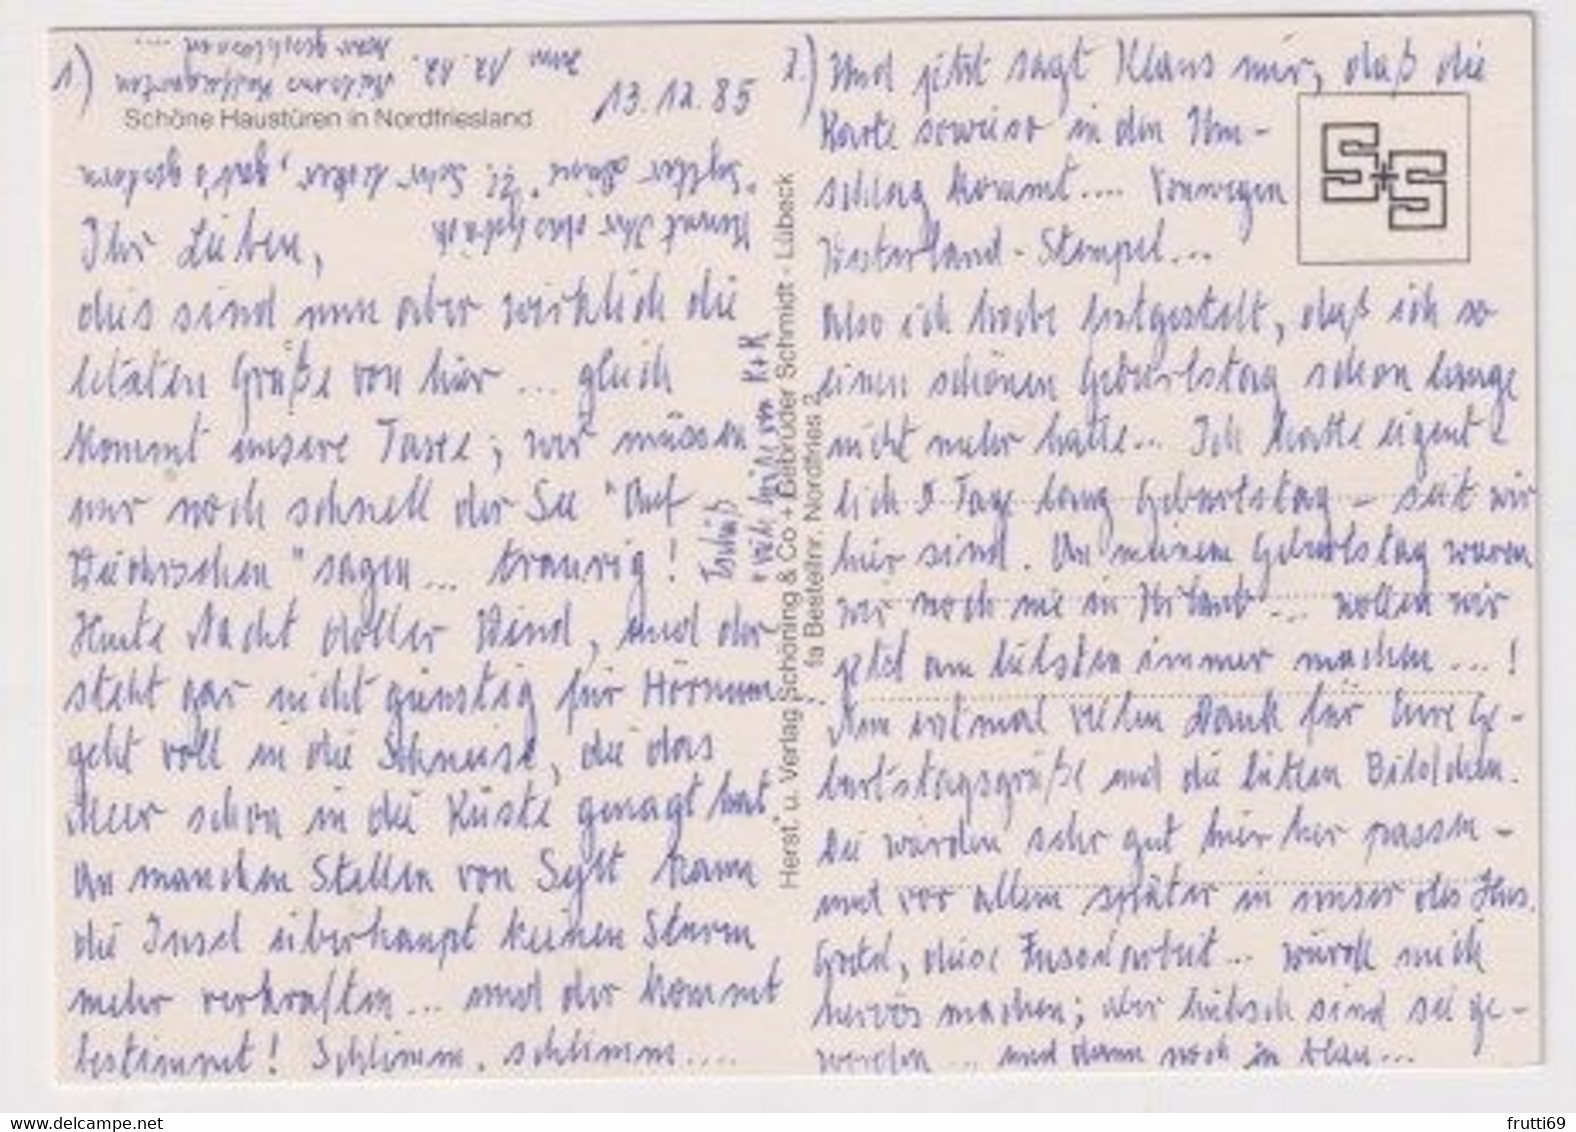 1.)
Schöne Haustüren in Nordfriesland
13.12.85
Ihr Lieben,
dies sind nun aber wirklich die
letzten Grüße von hier ... gleich
kommt unsere Taxe; wir müssen
nur noch schnell der See "Auf
Wiedersehen" sagen ... traurig!
Heute Nacht doller Wind, und der
steht gar nicht günstig für Hörnum...
geht voll in die Schneise, die das
Meer schon in die Küste genagt hat
An manchen Stellen von Sylt kann
die Insel überhaupt keinen Sturm
mehr verkraften... und der kommt
bestimmt! Schlimm, schlimm....
Tschüß
viele Grüße von K+K
Kennt Ihr das gebäck
"Sylter ... "? Sehr lecker, gab's gestern
zum 12.12.
war geschlossen ...
Herst. u. Verlag Schöning & Co + Gebrüder Schmidt - Lübeck
fa Bestellnr. Nordfries 2
2.) Und jetzt sagt Klaus mir, daß die
Karte sowieso in den Um-
schlag kommt.... Vonwegen
Westerland-Stempel...
S+S
Also ich habe festgestellt, daß ich so
einen schönen Geburtstag schon lange
nicht mehr hatte... Ich hatte eigent-
lich 5 Tage lang Geburtstag - seit wir
hier sind. An meinem Geburtstag waren
wir noch nie in Urlaub... wollen wir
jetzt am liebsten immer machen...!
Nun erstmal vielen Dank für Eure Ge-
burtstagsgrüße und die lieben Bildchen.
Sie würden sehr gut hierher passen -
und vor allem später in unser Haus.
Gretel, diese Fuselarbeit... würde mich
nervös machen; aber hübsch sind sie ge-
worden ... und dann noch in blau...
frutti69